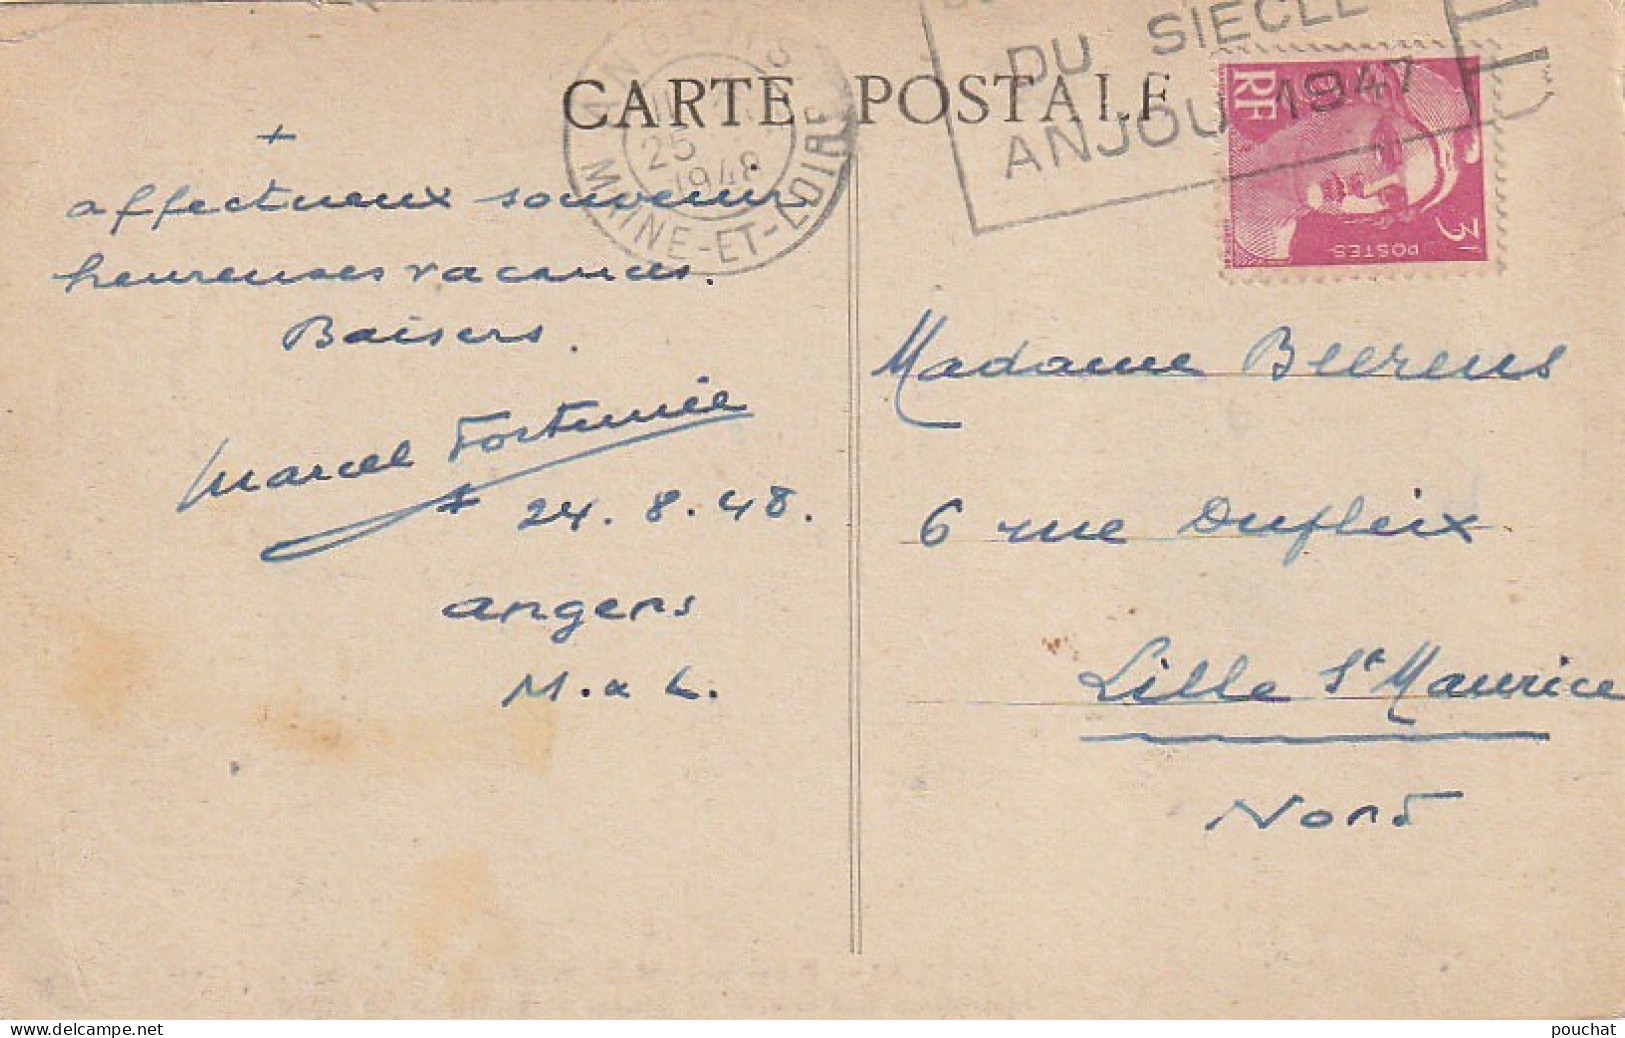 CARTE POSTALE
ANGERS
25
1948
MAINE-ET-LOIRE
DU SIECLE
ANJOU 1947
RF
POSTES
3F
+
affectueux souvenirs
heureuses vacances.
Baisers.
Marcel Fortunée
24.8.48.
angers
M. & L.
Madame Beerens
6 rue Dufleix
Lille St Maurice
Nord
www.delcampe.net
pouchat